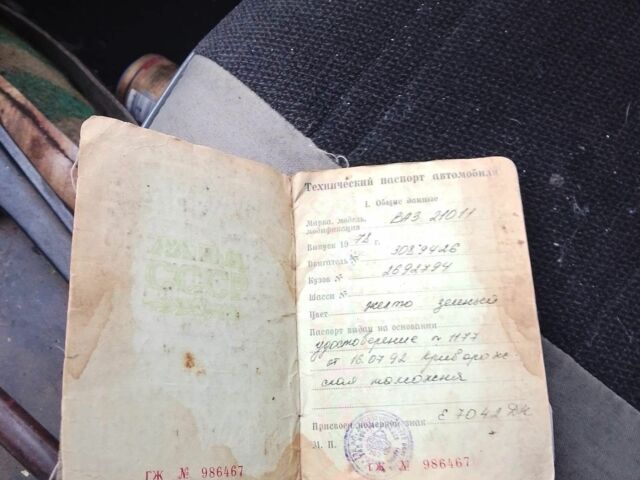 Технический паспорт автомобиля
I. Общие данные
Марка, модель,
модификация ВАЗ 21011
Выпуск 1978 г.
Двигатель № 3089426
Кузов № 2692794
Шасси №
Цвет желто зеленый
Паспорт выдан на основании
удостоверение № 1177
от 16.07.92 криворож-
ская таможня
Присвоен номерной знак Е 7042 ДН
М. П.
ГЖ № 986467
ГЖ № 986467